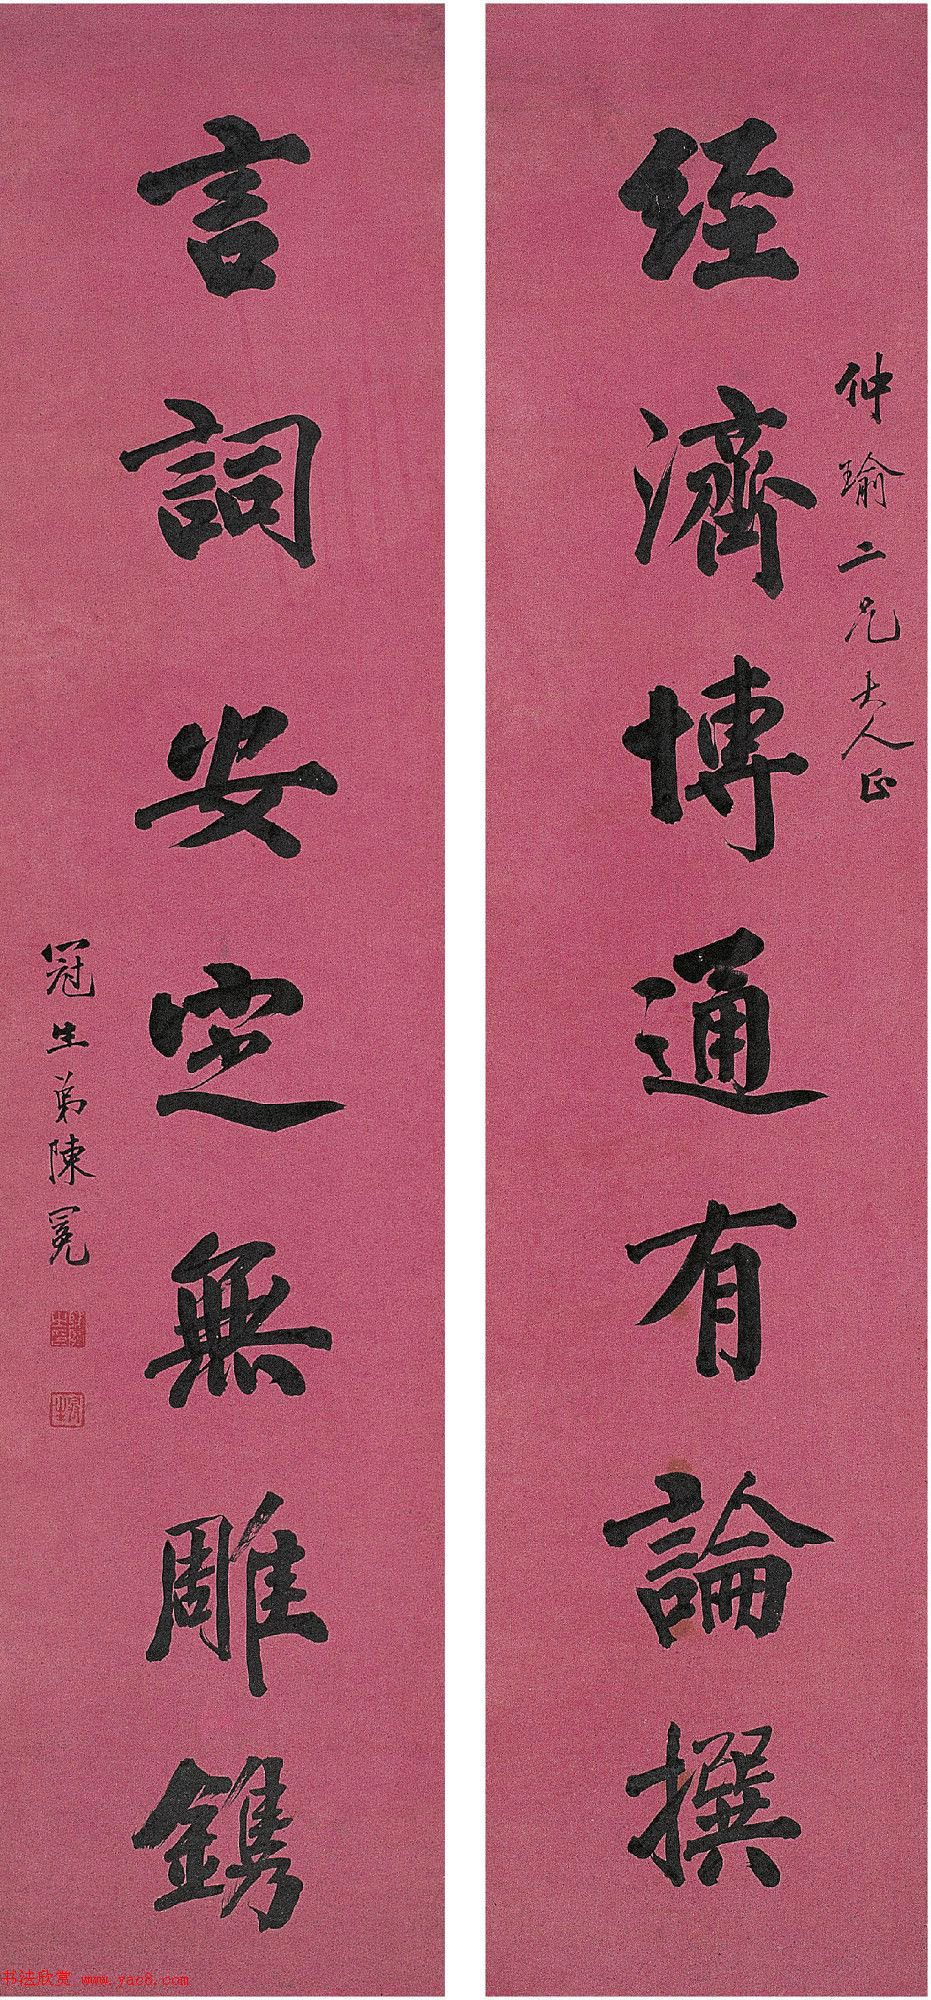 经濟博通有論撰
仲瑜二兄大人正
言詞安定無雕鐫
冠生弟陳冕
书法欣赏 www.yac8.com